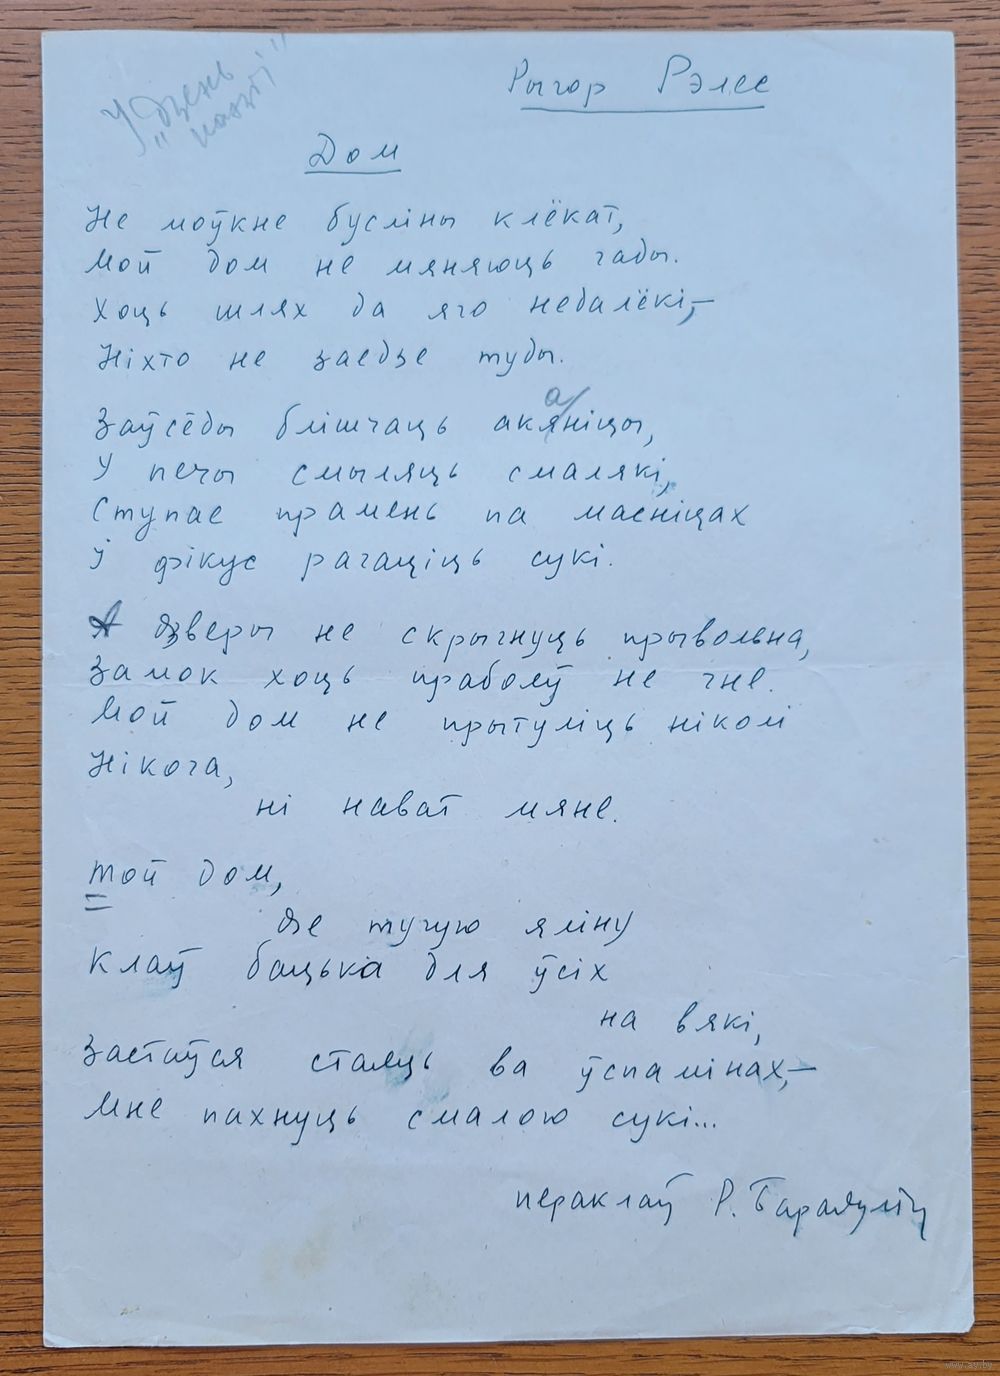 У "Дзень
паэзіі"
Рыгор Рэлес
Дом
Не моўкне бусліны клёкат,
Мой дом не мяняюць гады.
Хоць шлях да яго недалёкі,—
Ніхто не заедзе туды.
Заўсёды блішчаць акаяніцы,
У печы смыляць смалякі,
Ступае прамень па масніцах
Ў фікус рагаціць сукі.
А дзверы не скрыгнуць прывольна,
Замок хоць прабояў не гне.
Мой дом не прытуліць ніколі
Нікога,
ні нават мяне.
Той дом,
дзе тугую яліну
Клаў бацька для ўсіх
на вякі,
Застаўся стаяць ва ўспамінах,—
Мне пахнуць смалою сукі...
пераклаў Р. Барадулін
www.ay.by